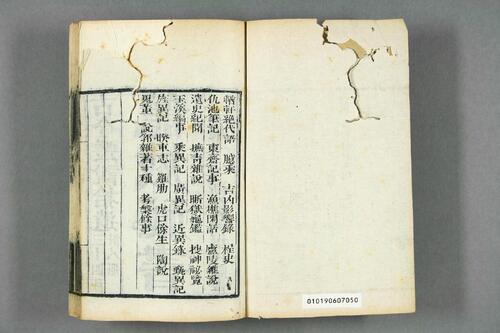 輶軒絶代語 臆乘 吉凶影響錄 桯史
仇池筆記 東齋記事 漁樵閒話 盧陵雜說
遺史紀聞 摭青雜說 晰獄龜鑑 搜神秘覽
玉溪編事 乘異記 廣異記 近異錄 甄異記
旌異記 睽車志 雞肋 虎口餘生 陶說
說郛雜著十種 考槃餘事
010190607050